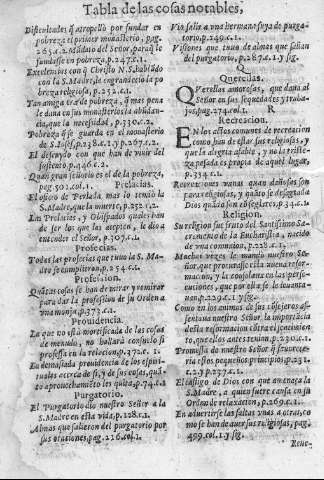 Tabla de las cosas notables,
Dificultades q̃ atropelló por fundar en
pobreza el primer monasterio, pag.
fundasse en pobreza, p.247.c.1.
Excelencias con q̃ Christo N.S. habládo
con la S. Madre, le engrandeciò la po
breza religiosa, p.252.c.1.
Tan amiga era de pobreza, q̃ mas pena
le dava en sus monasterios la abũdan-
cia, que la necesidad, p.250.c.2.
Pobreza q̃ se guarda en el monasterio
de S. Josef, p.238.c.1. y p.267.c.2.
El descuydo con que han de vivir del
sustento p.446.c.2.
Quan gran señorio es el de la pobreza,
pag.502.col.1.
Prelacias.
El oficio de Perlada mas lo sentia la
S. Madre, que la muerte, p.852.c.2.
Las Prelacias, y Obispados quales han
de ser los que las acepten, le dio a
entender el Señor, p.307.c.1.
Profecias.
Todas las profecias que tuvo la S. Ma-
dre se cumplieron, p.254.c.1.
Profession.
Quãtas cosas se han de mirar y remirar
para dar la profession de su Orden a
una monja, p.373.c.1.
Providencia.
La que no està mortificada de las cosas
de menudo, no hallarà consuelo si
professa en la relacion, p.372.c.1.
En demasiada providencia de los espiri-
tuales acerca de si, y de sus cosas, quã-
to aprovechamiẽto les quita, p.74.c.2
Purgatorio.
El Purgatorio diò nuestro Señor a la
S. Madre en esta vida, p.128.c.1.
Almas que salieron del purgatorio por
sus oraciones, pag.216.col.1.
Vio salir a una hermana suya de purga-
torio, p.249.c.1.
Visiones que tuvo de almas que salian
del purgatorio, p.287.c.1. y sig.
Q
Querellas.
QVerellas amorosas, que dava al
Señor en sus sequedades y traba-
jos, pag.274.col.1.
R
Recreacion.
EN los actos comunes de recreacion
como han de estar sus religiosas, y
que la alegria afable, y no la triste-
za pesada es propia de aquel lugar,
p.334.c.1.
Recreaciones vanas quan dañosas son
para religiosas, y quãto se disgusta
Dios quãdo son esposas suyas, p.34.c.2
Religion.
Su religion fue fruto del Santissimo Sa-
cramento de la Eucharistia, nacido
de una comunion, p.228.c.1.
Muchas vezes le mandò nuestro Se-
ñor, que procurasse esta nueva refor-
macion, y la consolava en las perse-
cuciones, que por ella se le levanta-
van, p.229.c.1 y sig.
Como en los animos de los cõsejeros as-
sentava nuestro Señor la importãcia
desta reformacion cõtra el sentimien-
to, que ellos antes tenian, p.230.c.1.
Promessa de nuestro Señor q̃ favorece-
ria estos pequeños principios, p.231.
c.1. y p.237.c.1.
El castigo de Dios con que amenaza la
S. Madre, a quien fuere causa en su
Orden de relaxacion, p.269.c.1.
En advertirse las faltas unas a otras, co-
mo se han de aver sus religiosas, pag.
409.col.1. y sig.
Reve-